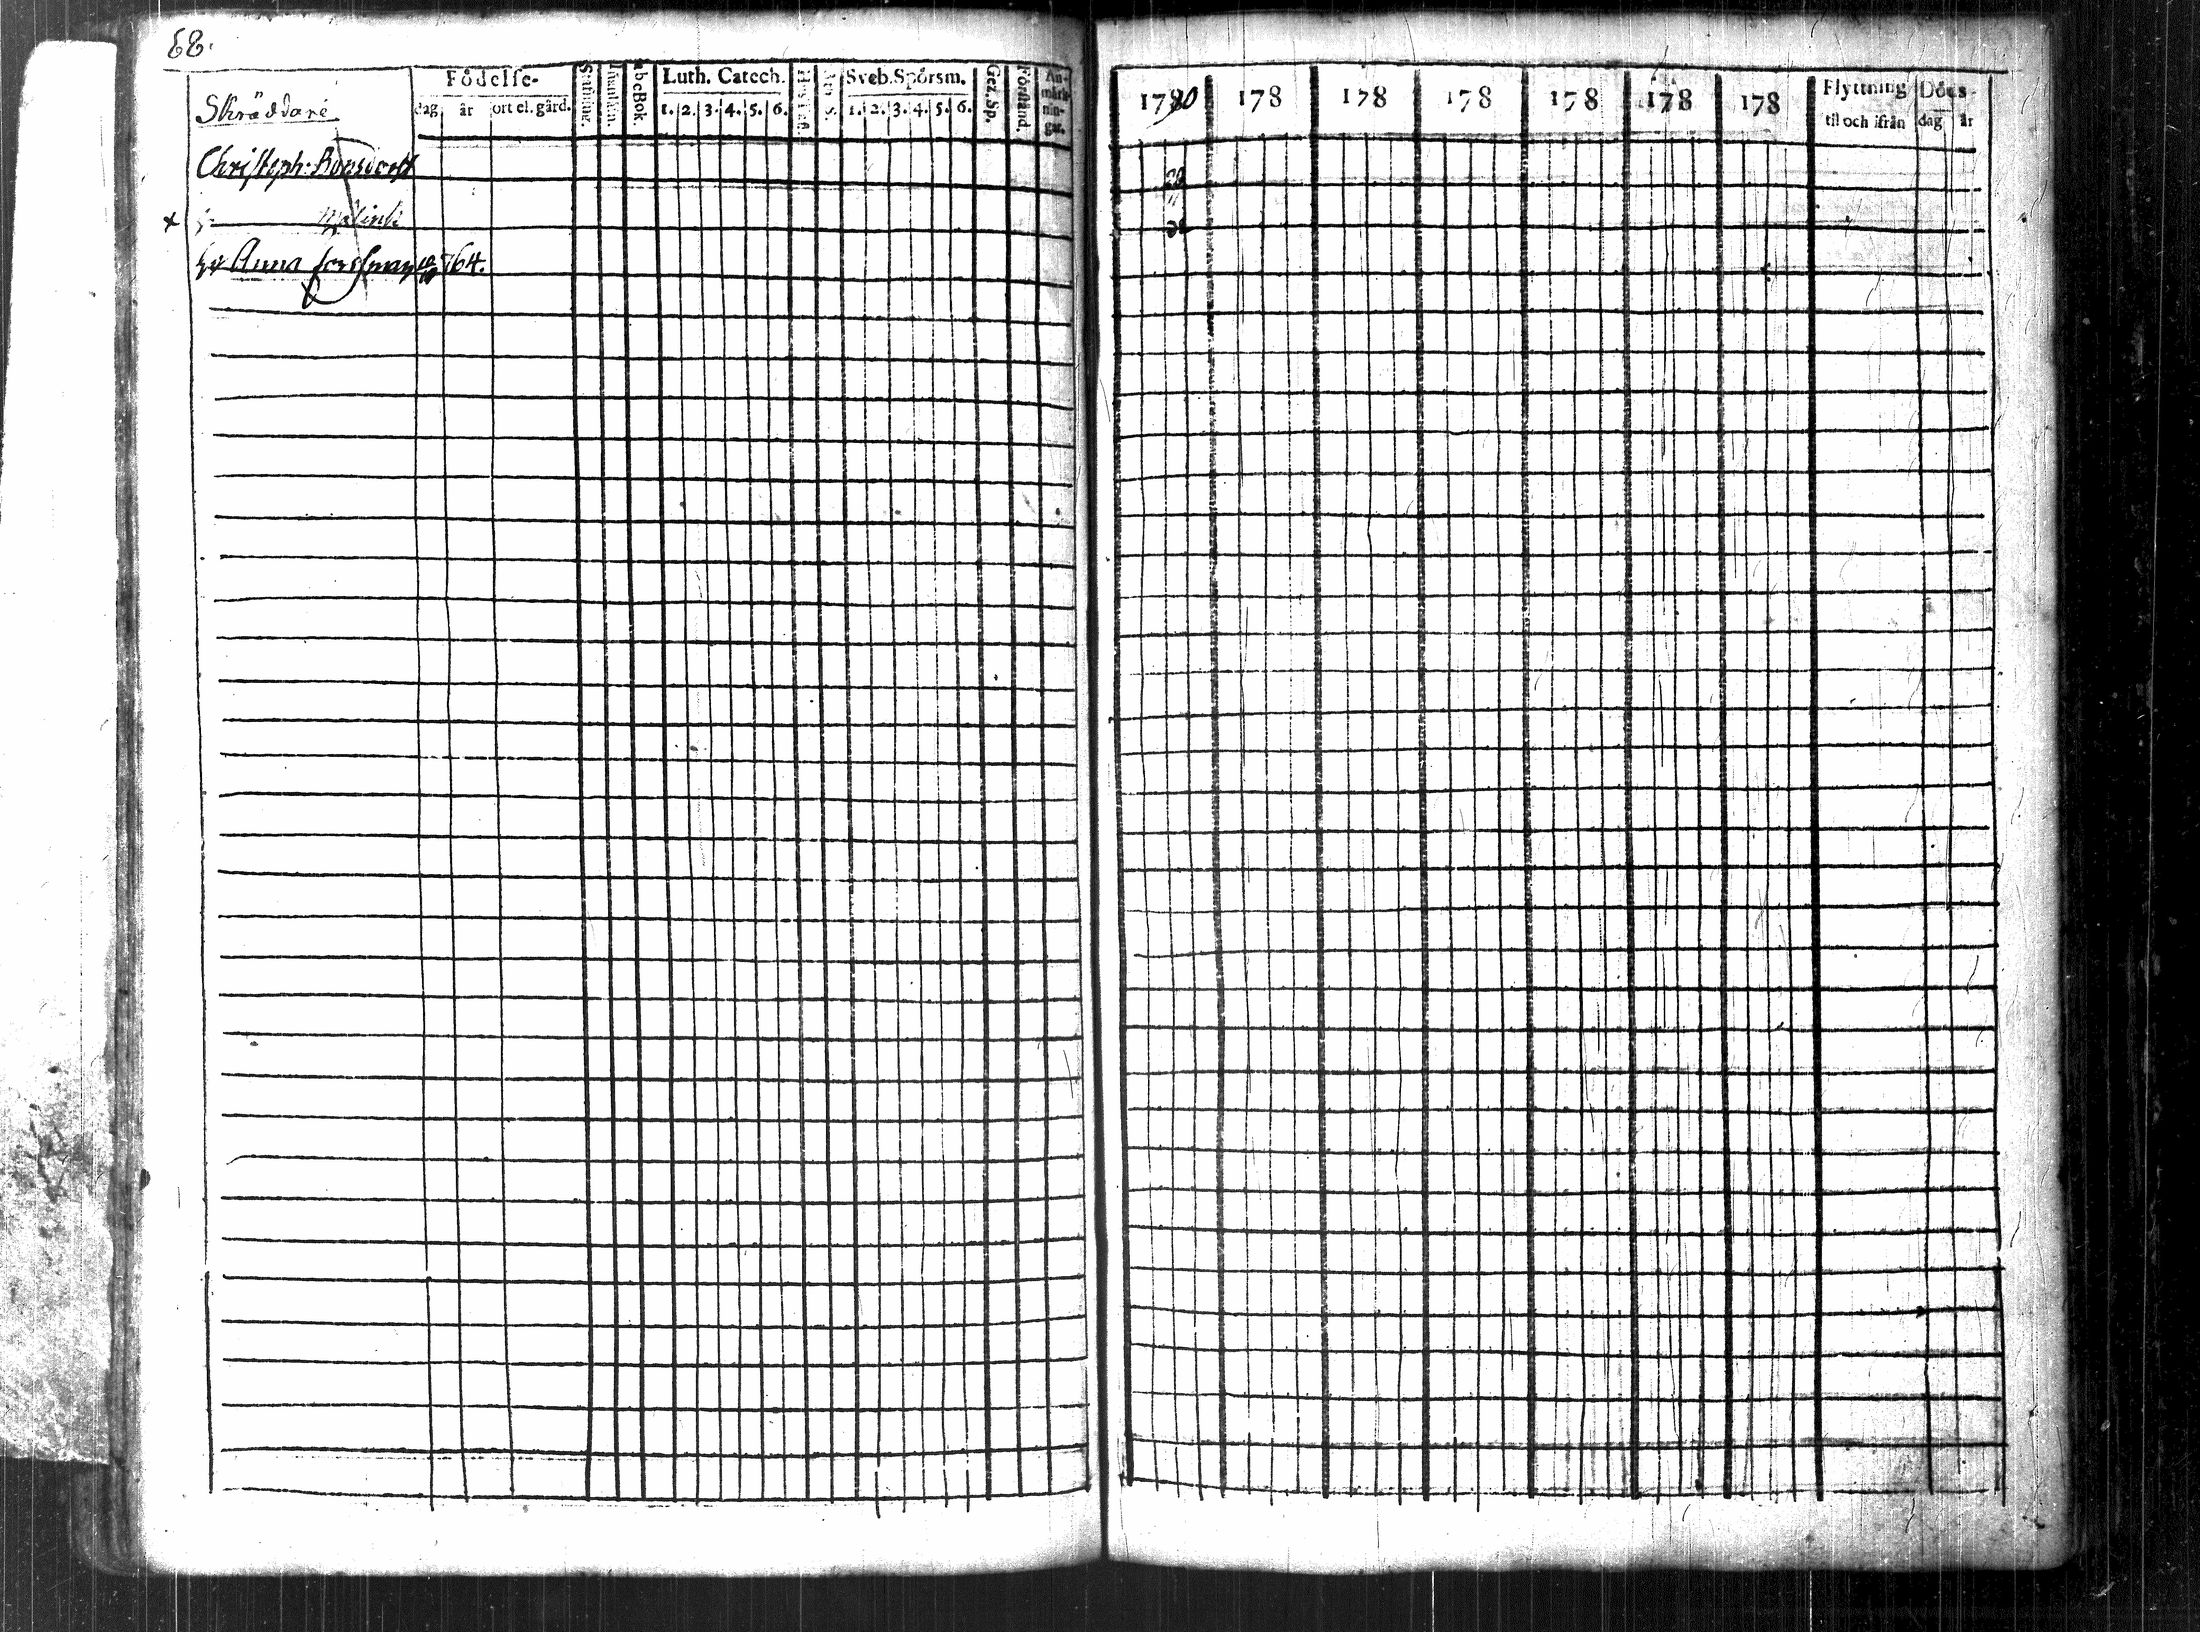 68.
Skräddare
Födelse-
dag år ort el. gård.
abcBok.
Luth. Catech.
1. 2. 3. 4. 5. 6.
Sveb. Spörsm.
1. 2. 3. 4. 5. 6.
Gez. Sp.
Förstånd.
An-
märk-
nin-
gar.
Christoph: Bonsdorff
hu Anna Forsman 764.
1790 178 178 178 178 178 178
Flyttning
til och ifrån
Döds-
dag år